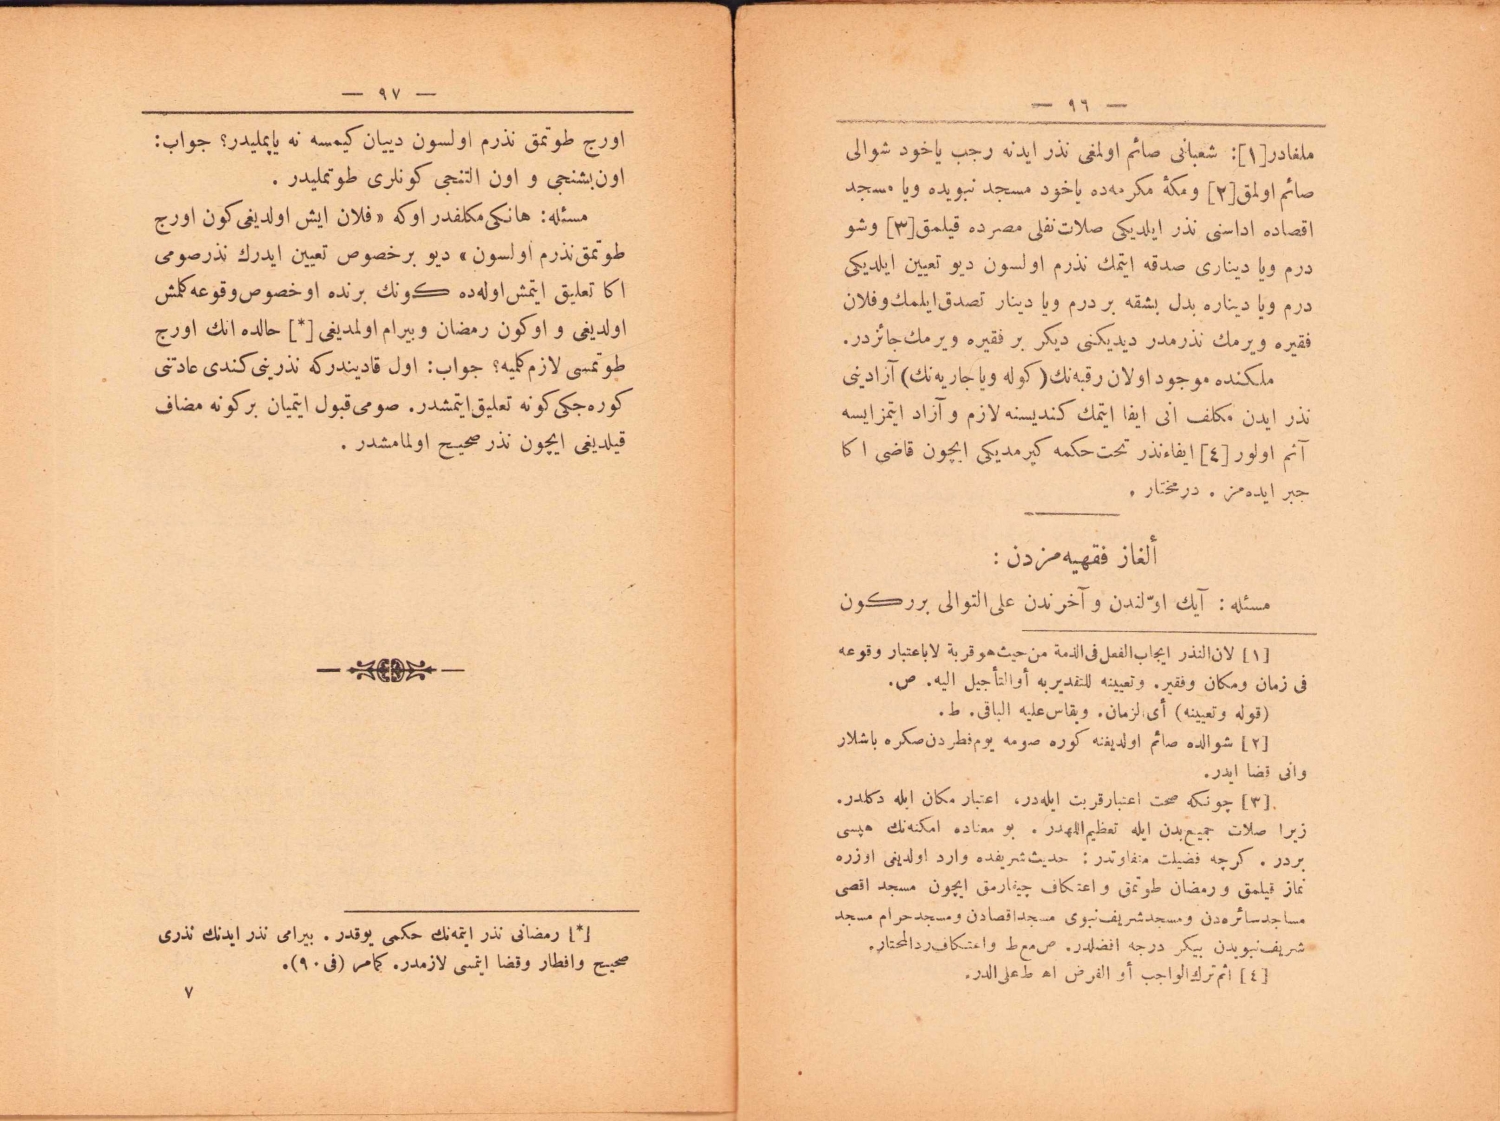 — ٩٦ —
ملغادر[١]: شعبانی صائم اولمغی نذر ایدنه رجب یاخود شوالی
صائم اولمق[٢] ومکۀ مکرمه‌ده یاخود مسجد نبویده ویا مسجد
اقصاده اداسنی نذر ایلدیکی صلات نفلی مصرده قیلمق[٣] وشو
درم ویا دیناری صدقه ایتمك نذرم اولسون دیو تعیین ایلدیکی
درم ویا دیناره بدل بشقه بر درم ویا دینار تصدق ایلمك وفلان
فقیره ویرمك نذرمدر دیدیکنی دیکر بر فقیره ویرمك جائزدر.
ملکنده موجود اولان رقبه‌نك (کوله ویا جاریه‌نك) آزادینی
نذر ایدن مکلف انی ایفا ایتمك کندیسنه لازم و آزاد ایتمزایسه
آثم اولور [٤] ایفاء نذر تحت حکمه کیرمدیکی ایچون قاضی اکا
جبر ایده‌مز . درمختار .
ألغاز فقهیه‌مزدن :
مسئله : آیك اوّلندن و آخرندن علی التوالی بررکون
[١] لان النذر ایجاب الفعل فی الذمة من حیث هو قربة لا باعتبار وقوعه
فی زمان ومکان وفقیر. وتعیینه للتقدیر به أو التأجیل الیه. ص.
(قوله وتعیینه) أی الزمان. ویقاس علیه الباقی. ط.
[٢] شوالده صائم اولدیغنه کوره صومه یوم فطردن صکره باشلار
وانی قضا ایدر.
[٣] چونکه صحت اعتبار قربت ایله‌در، اعتبار مکان ایله دکلدر.
زیرا صلات جمیع بدن ایله تعظیم اللهدر . بو معناده امکنه‌نك هپسی
بردر . کرچه فضیلت متفاوتدر : حدیث شریفده وارد اولدیغی اوزره
نماز قیلمق و رمضان طوتمق و اعتکاف چیقارمق ایچون مسجد اقصی
مساجد سائره‌دن و مسجد شریف نبوی مسجد اقصادن و مسجد حرام مسجد
شریف نبویدن بیکر درجه افضلدر. ص مع ط واعتکاف ردالمحتار.
[٤] اثم ترك الواجب أو الفرض اه ط علی الدر.
— ٩٧ —
اورج طوتمق نذرم اولسون دییان کیمسه نه یاپملیدر؟ جواب:
اون بشنجی و اون التنجی کونلری طوتملیدر .
مسئله: هانکی مکلفدر اوکه « فلان ایش اولدیغی کون اورج
طوتمق نذرم اولسون » دیو برخصوص تعیین ایدرك نذر صومی
اکا تعلیق ایتمش اوله‌ده کونك برنده اوخصوص وقوعه کلمش
اولدیغی و اوکون رمضان وبیرام اولمدیغی [*] حالده انك اورج
طوتمسی لازم کلمیه؟ جواب: اول قادیندرکه نذرینی کندی عادتنی
کوره‌جکی کونه تعلیق ایتمشدر. صومی قبول ایتمیان برکونه مضاف
قیلدیغی ایچون نذر صحیح اولمامشدر .
[*] رمضانی نذر ایتمه‌نك حکمی یوقدر . بیرامی نذر ایدنك نذری
صحیح وافطار وقضا ایتمسی لازمدر. کمامر (فی ٩٠).
٧